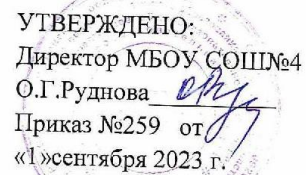 УТВЕРЖДЕНО:
Директор МБОУ СОШ№4
О.Г.Руднова
Приказ №259 от
«1»сентября 2023 г.